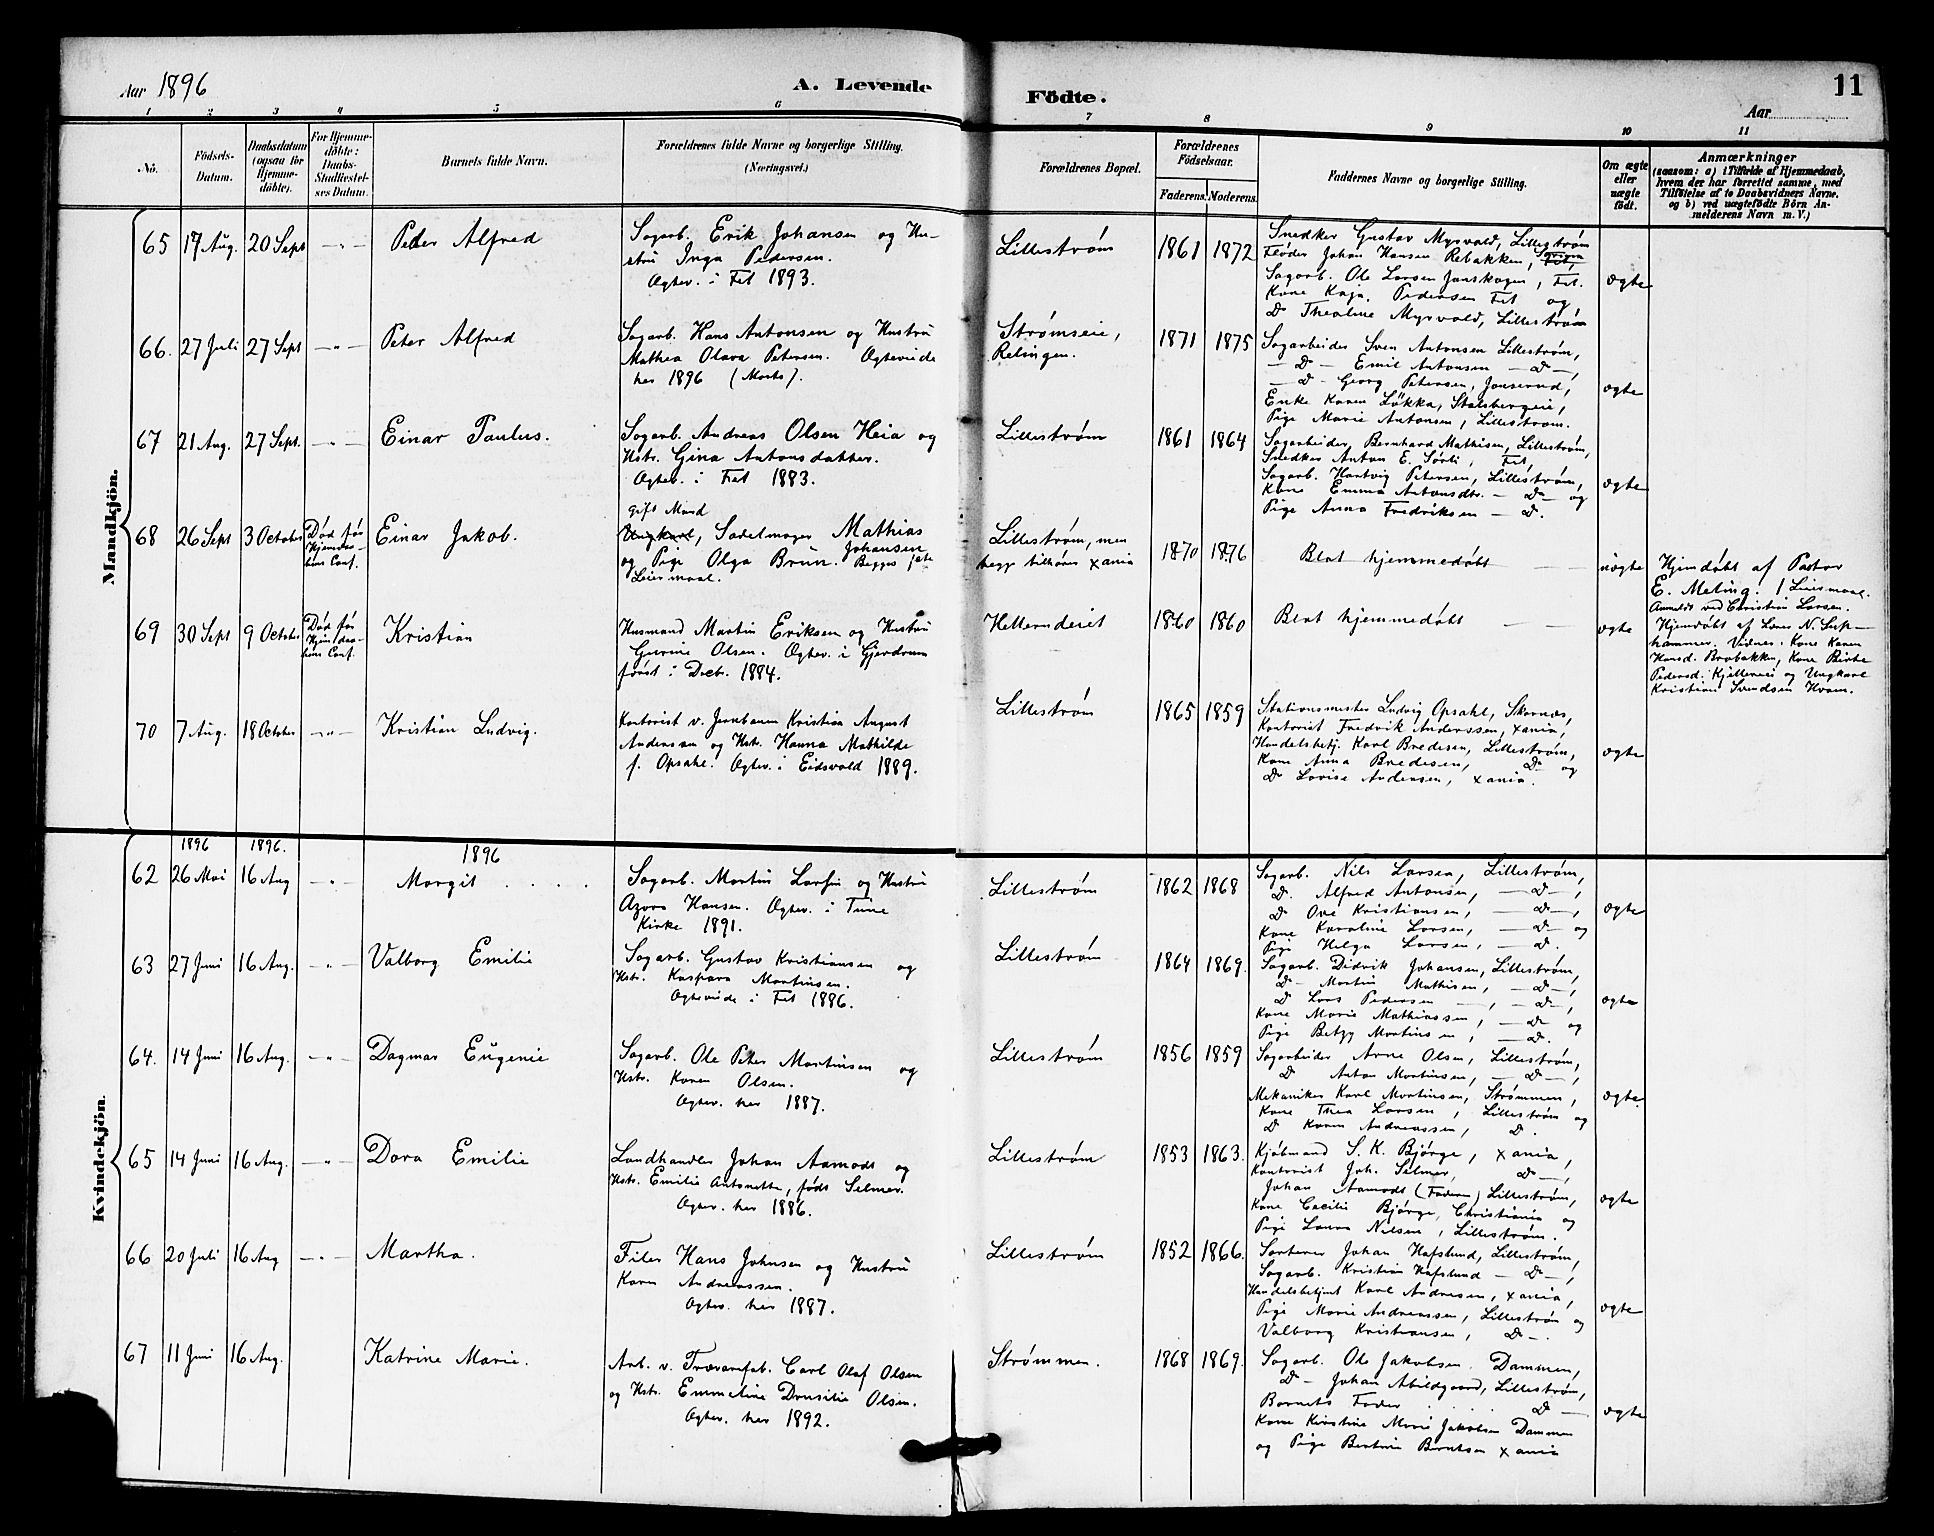 Aar 1896
A. Levende Födte.
11
Aar
1 2 3 4 5 6 7 8 9 10 11
No.
Födsels-Datum.
Daabsdatum (ogsaa for Hjemmedöbte).
For Hjemmedöbte: Daabs-Stadfæstelses Datum.
Barnets fulde Navn.
Forældrenes fulde Navne og borgerlige Stilling.
(Næringsvei.)
Forældrenes Bopæl.
Forældrenes Födselsaar.
Faderens. Moderens.
Faddernes Navne og borgerlige Stilling.
Om ægte eller uægte födt.
Anmærkninger
(saasom: a) i Tilfælde af Hjemmedaab, hvem der har forrettet samme, med Tilföielse af to Daabsvidners Navne. og b) ved uægtefödte Börn Anmelderens Navn m. V.)
Mandkjön.
65 17 Aug. 20 Sept —„— Peter Alfred
Sagarb. Erik Johansen og Hu-
stru Inga Pedersen.
Ægtev. i Fet 1893.
Lillestrøm 1861 1872
Snedker Gustav Myrvold, Lillestrøm
Fløder Johan Hansen Rebakken,
Sagarb. Ole Larsen Jonskogen, Fet.
Kone Kaja Pedersen Fet og
Do Thealine Myrvold, Lillestrøm
ægte
66. 27 Juli 27 Sept —„— Peter Alfred
Sagarb. Hans Antonsen og Hustru
Mathea Olava Petersen. Ægteviede
her 1896 (Marts).
Strømseie,
Relingen.
1871 1875
Sagarbeider Sven Antonsen Lillestrøm,
— Do — Emil Antonsen — Do —,
— Do — Georg Petersen, Jonsrud,
Enke Karen Løkka, Stalsbergeie,
Pige Marie Antonsen, Lillestrøm.
ægte
67 21 Aug. 27 Sept. —„— Einar Paulus.
Sagarb. Andreas Olsen Heia og
Hstr. Gina Antonsdatter.
Ægtev. i Fet 1883.
Lillestrøm 1861 1864
Sagarbeider Bernhard Mathisen, Lillestrøm,
Snedker Anton E. Sørli, Fet,
Sagarb. Hartvig Petersen, Lillestrøm,
Kone Emma Antonsdtr. — Do — og
Pige Anna Fredriksen — Do.
ægte
68 26 Sept 3 October
Død før
Einar Jakob.
gift Mand
Ungkarl, Sadelmager Mathias
Johansen
og Pige Olga Brun. Begges 1ste
Leiermaal.
Lillestrøm, men
begge tilhører Xania
1870 1876
Blot hjemmedøbt
uægte
Hjemdøbt af Pastor
E. Meling. 1 Leiermaal.
Anmeldt ved Christin Larsen.
69 30 Sept 9 October
Død før
Kristian
Husmand Martin Eriksen og Hustru
Gurine Olsen. Ægtev. i Gjerdrum
først i Decbr. 1884.
1860 1860
Blot hjemmedøbt
ægte
hammer. Vidner: Kone Karen
Hansd. Brobakken, Kone Birthe
Pedersd. Kjellereie og Ungkarl
Kristian Svendsen Hvam.
70 7 Aug. 18 October —„— Kristian Ludvig.
Kontorist v. Jernbanen Kristian August
Anderssen og Hstr. Hanna Mathilde
f. Opsahl. Ægtev. i Eidsvold 1889.
Lillestrøm 1865 1859
Stationsmester Ludvig Opsahl, Skarnæs,
Kontorist Fredrik Anderssen, Xania,
Handelsbetj. Karl Bredesen, Lillestrøm,
Kone Anna Bredesen, Do og
Do Lovise Andersen, Xania.
ægte
Kvindekjön.
1896 1896. 1896
62 26 Mai 16 Aug —„— Margit
Sagarb. Martin Larsen og Hustru
Azora Hansen. Ægtev. i Tune
Kirke 1891.
Lillestrøm 1862 1868
Sagarb. Nils Larsen, Lillestrøm,
Do. Alfred Antonsen, — Do —,
Do Ove Kristiansen, — Do —,
Kone Karoline Larsen, — Do — og
Pige Helga Larsen, — Do.
ægte
63 27 Juni 16 Aug. —„— Valborg Emilie
Sagarb. Gustav Kristiansen og
Hstr. Kaspara Martinsen.
Ægteviede i Fet 1886.
Lillestrøm 1864 1869.
Sagarb. Didrik Johansen, Lillestrøm,
Do — Martin Mathisen, — Do —,
Do Lars Pedersen —, — Do —,
Kone Marie Mathiassen, — Do og
Pige Betzy Martinsen, — Do.
ægte
64. 14 Juni 16 Aug. —„— Dagmar Eugenie
Sagarb. Ole Peter Martinsen og
Hstr. Karen Olsen.
Ægtev. her 1887.
Lillestrøm 1856 1859
Sagarbeider Arne Olsen, Lillestrøm,
Do Anton Martinsen, — Do —,
Mekaniker Karl Martinsen, Strømmen,
Kone Thea Larsen, Lillestrøm og
Do Karen Andreassen, Do.
ægte.
65 14 Juni 16 Aug. —„— Dora Emilie
Landhandler Johan Aamodt og
Hstr. Emilie Antonette, født Selmer.
Ægtev. her 1886.
Lillestrøm 1853 1863.
Kjøbmand S. K. Bjørge, Xania,
Kontorist Joh. Selmer, Do —,
Johan Aamodt (Faderen) Lillestrøm,
Kone Cecilie Bjørge, Christiania og
Pige Laura Nilsen, Lillestrøm.
ægte
66 20 Juli 16 Aug —„— Martha.
Filer Hans Johnsen og Hustru
Karen Andreassen.
Ægtev. her 1887.
Lillestrøm 1852 1866.
Sorterer Johan Hafslund, Lillestrøm,
Sagarb. Kristian Hafslund — Do —,
Handelsbetjent Karl Andresen, Xania,
Pige Marie Andreassen, Lillestrøm og
Valborg Kristiansen, Do —.
ægte
67 11 Juni 16 Aug. Katrine Marie.
Arb. v. Trævarefab. Carl Olaf Olsen
og Hstr. Emmeline Drusilie Olsen.
Ægtev. her 1892.
Strømmen. 1868 1869.
Sagarb. Ole Jakobsen. Dammen,
Do — Johan Abildgaard, Lillestrøm,
Barnets Fader Do —
Kone Kirstine Marie Jakobsen Dammen
og Pige Bertine Berntsen Xania
ægte